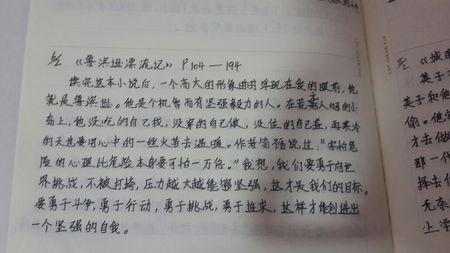 《鲁滨逊漂流记》 P104—194
读完这本小说后,一个高大的形象时时浮现在我的眼前,他
就是鲁滨逊。他是个机智而有坚强毅力的人。在荒无人烟的小
岛上,他没吃的自己找,没穿的自己做,没住的自己盖,再寒冷
的天也要用心中的一丝火苗去温暖。作者笛福说过,“害怕危
险的心理比危险本身要可怕一万倍。”我想,我们要勇于向世
界挑战,不被打垮,压力越大越能够坚强,这才是我们的目标。
要勇于斗争,勇于行动,勇于挑战,勇于追求,这样才能创造出
一个坚强的自我。
《城南
英子
英子和他
你。他
才去做
那一
择去
无奈
上学